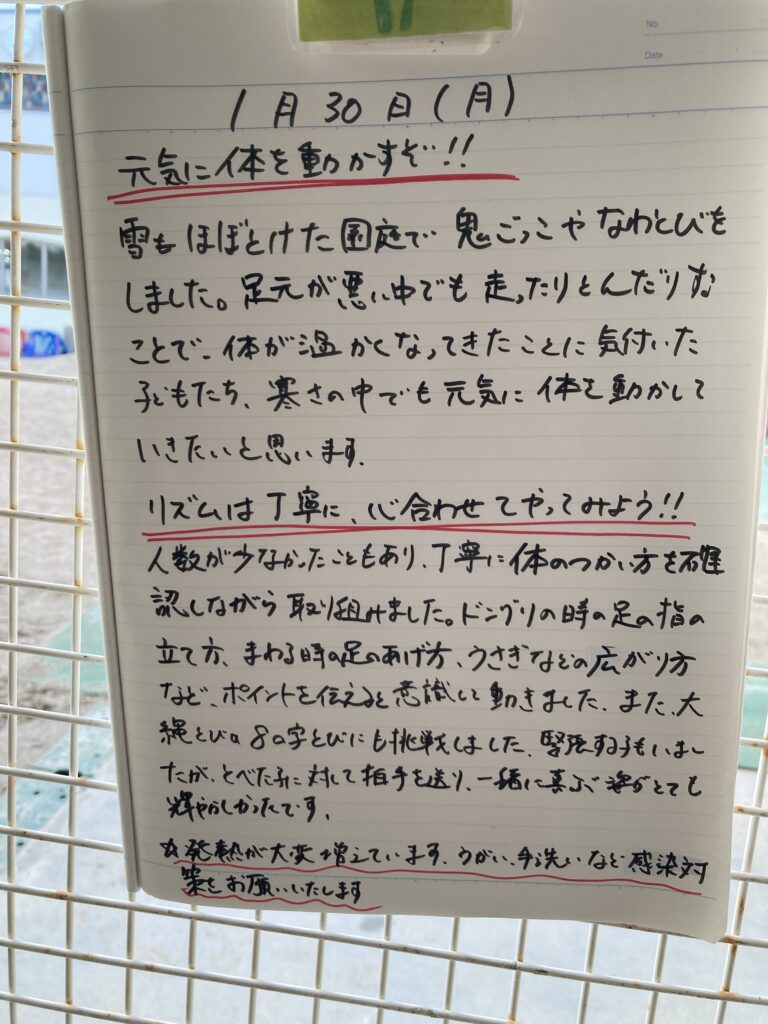 No.
Date
1月30日(月)
元気に体を動かすぞ!!
雪もほぼとけた園庭で鬼ごっこやなわとびを
しました。足元が悪い中でも走ったりとんだりする
ことで、体が温かくなってきたことに気付いた
子どもたち、寒さの中でも元気に体を動かして
いきたいと思います。
リズムは丁寧に、心合わせてやってみよう!!
人数が少なかったこともあり、丁寧に体のつかい方を確
認しながら取り組みました。ドングリの時の足の指の
立て方、まわる時の足のあげ方、うさぎなどの広がり方
など、ポイントを伝えると意識して動きました。また、大
縄とびの8の字とびにも挑戦しました。緊張する子もいまし
たが、とべた子に対して拍手を送り、一緒に喜ぶ姿がとても
輝やかしかったです。
☆発熱が大変増えています。うがい、手洗いなど感染対
策をお願いいたします